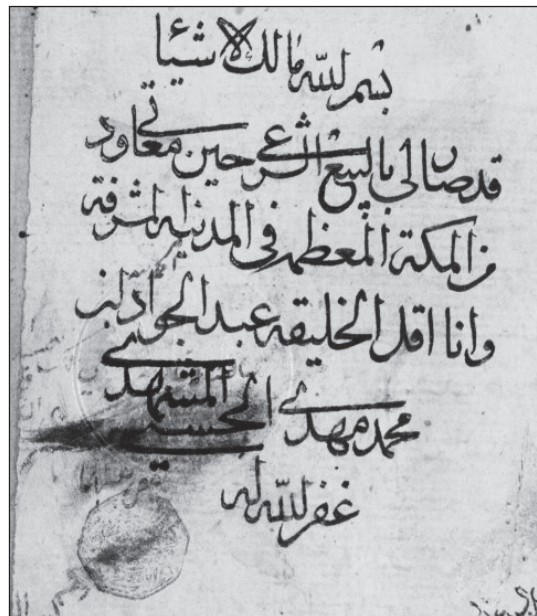 بسم الله مالك الاشيئا
قد صار لي بالبيع الشرعي حين معاودتي
من المكة المعظمة في المدينة المشرفة
وانا اقل الخليقه عبد الجواد ابن
محمد مهدي الحسيني المشهدي
غفر الله له